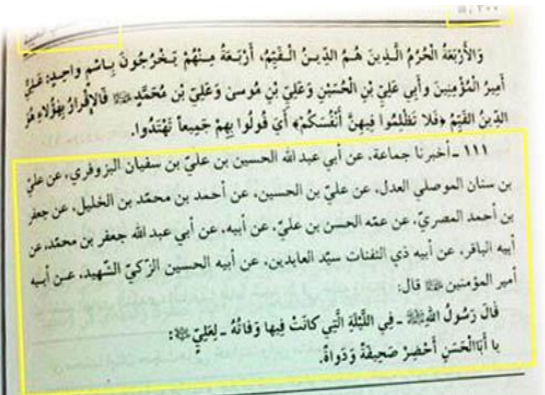 وَالْأَرْبَعَةُ الْحُرُمُ الَّذِينَ هُمُ الدِّينُ الْقَيِّمُ، أَرْبَعَةٌ مِنْهُمْ يَخْرُجُونَ بِاسْمٍ وَاحِدٍ: عَلِيٌّ
أَمِيرُ الْمُؤْمِنِينَ وَأَبِي عَلِيُّ بْنُ الْحُسَيْنِ وَعَلِيُّ بْنُ مُوسى وَعَلِيُّ بْنُ مُحَمَّدٍ ﷺ فَالْإِقْرارُ بِهٰؤُلاءِ هُوَ
الدِّينُ القَيِّمُ ﴿فَلا تَظْلِمُوا فِيهِنَّ أَنْفُسَكُمْ﴾ أَيْ قُولُوا بِهِمْ جَمِيعاً تَهْتَدُوا.
١١١ ـ أخبرنا جماعة، عن أبي عبد الله الحسين بن عليّ بن سفيان البزوفري، عن عليّ
بن سنان الموصلي العدل، عن عليّ بن الحسين، عن أحمد بن محمّد بن الخليل، عن جعفر
بن أحمد المصريّ، عن عمّه الحسن بن عليّ، عن أبيه، عن أبي عبد الله جعفر بن محمّد، عن
أبيه الباقر، عن أبيه ذي الثفنات سيّد العابدين، عن أبيه الحسين الزّكيّ الشّهيد، عـن أبـيه
أمير المؤمنين قال:
قالَ رَسُولُ اللهِ ﷺ ـ فِي اللَّيْلَةِ الَّتِي كانَتْ فِيها وَفاتُهُ ـ لِعَلِيٍّ :
يا أَبَا الْحَسَنِ أَحْضِرْ صَحِيفَةً وَدَواةً.